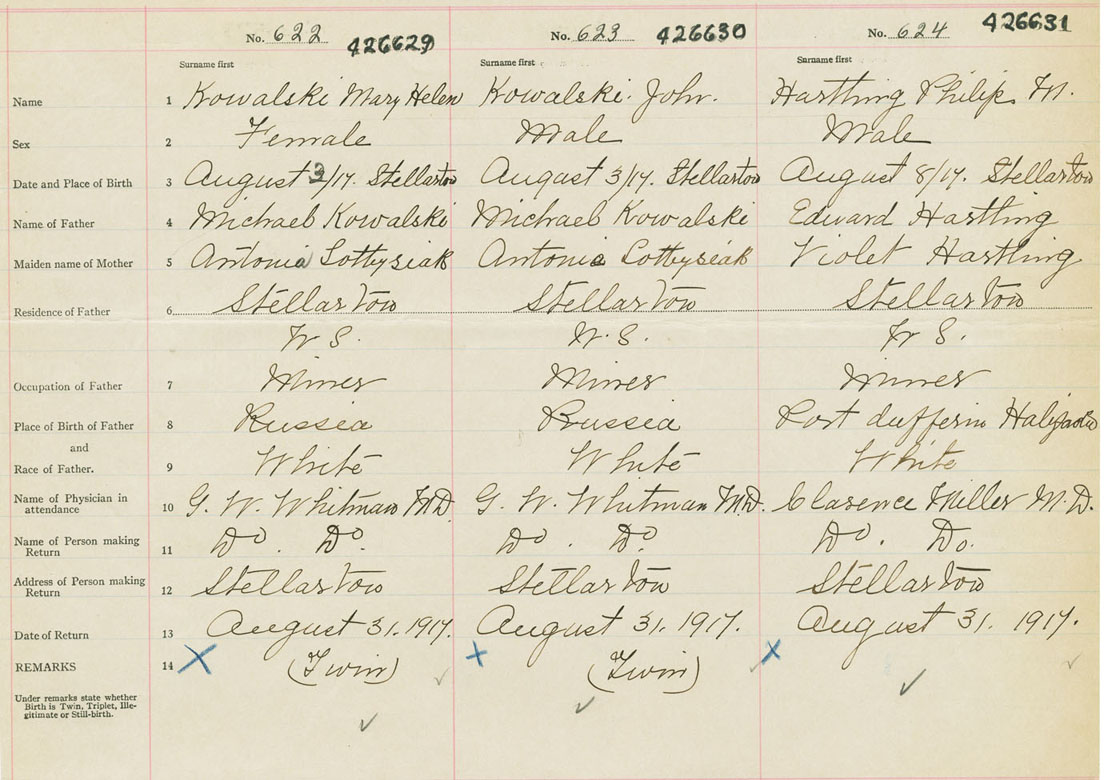 No. 622 426629 No. 623 426630 No. 624 426631
Surname first Surname first Surname first
Name 1 Kowalski Mary Helen Kowalski John. Hartling Philip M.
Sex 2 Female Male Male
Date and Place of Birth 3 August 3/17. Stellarton August 3/17. Stellarton August 8/17. Stellarton
Name of Father 4 Michael Kowalski Michael Kowalski Edward Hartling
Maiden name of Mother 5 Antonia Lottysiak Antonia Lottysiak Violet Hartling
Residence of Father 6 Stellarton Stellarton Stellarton
N.S. N.S. N.S.
Occupation of Father 7 Miner Miner Miner
Place of Birth of Father 8 Russia Russia Port dufferin Halifax Co
and
Race of Father. 9 White White White
Name of Physician in
attendance 10 G. W. Whitman M.D. G. W. Whitman M.D. Clarence Miller M.D.
Name of Person making
Return 11 Do. Do. Do. Do. Do. Do.
Address of Person making
Return 12 Stellarton Stellarton Stellarton
Date of Return 13 August 31. 1917. August 31. 1917. August 31. 1917.
REMARKS 14 (Twin) (Twin)
Under remarks state whether
Birth is Twin, Triplet, Ille-
gitimate or Still-birth.